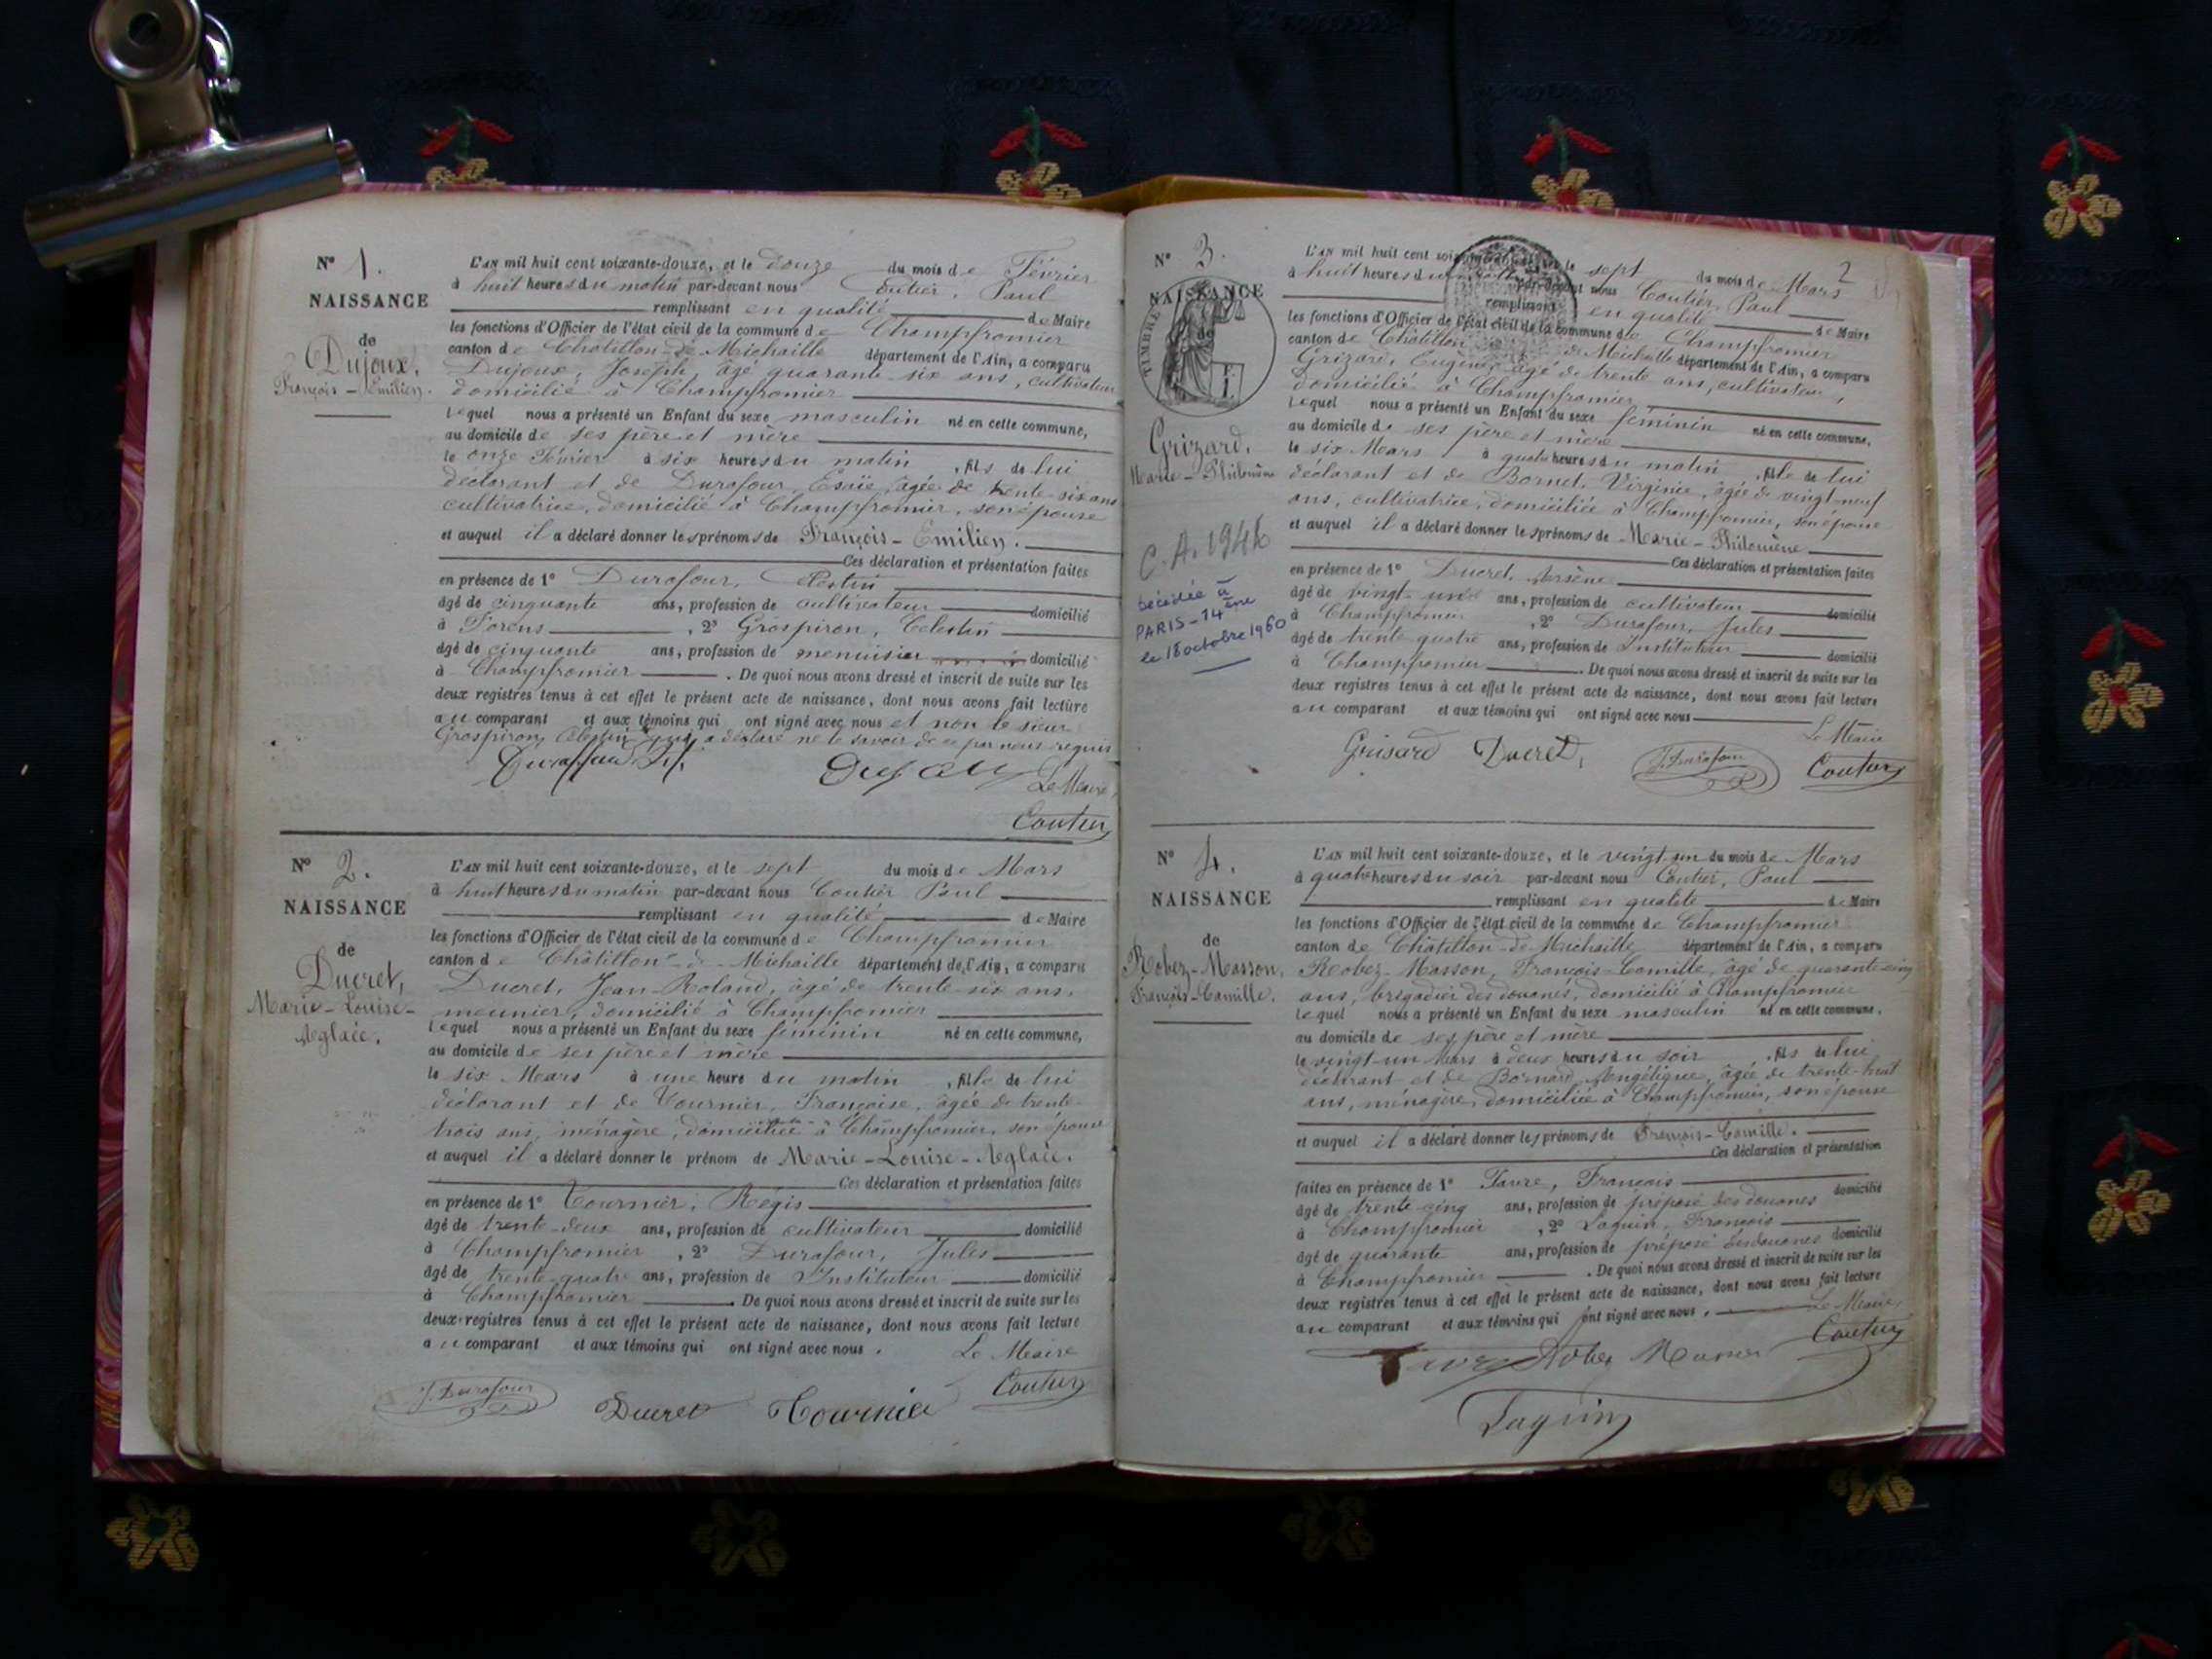 Nº 1.
NAISSANCE
de
Dujoux,
François-Emilien.
L'AN mil huit cent soixante-douze, et le douze du mois de Février
à huit heures du matin par-devant nous Coutier, Paul
remplissant en qualité de Maire
les fonctions d'Officier de l'état civil de la commune de Champfromier
canton de Châtillon-de-Michaille département de l'Ain, a comparu
Dujoux, Joseph, âgé quarante-six ans, cultivateur
domicilié à Champfromier
lequel nous a présenté un Enfant du sexe masculin né en cette commune,
au domicile de ses père et mère
le onze Février à six heures du matin, fils de lui
déclarant et de Durafour, Esaïe, âgée de trente-six ans
cultivatrice, domicilié à Champfromier, son épouse
et auquel il a déclaré donner les prénoms de François-Emilien.
Ces déclaration et présentation faites
en présence de 1º Durafour,
âgé de cinquante ans, profession de cultivateur domicilié
à Forens, 2º Grospiron, Celestin
âgé de cinquante ans, profession de menuisier domicilié
à Champfromier. De quoi nous avons dressé et inscrit de suite sur les
deux registres tenus à cet effet le présent acte de naissance, dont nous avons fait lecture
au comparant et aux témoins qui ont signé avec nous et non le sieur
Grospiron, Celestin qui a déclaré ne le savoir de ce par nous requis
Le Maire,
Coutier
Nº 2.
NAISSANCE
de
Ducret,
Marie-Louise-
Aglaée.
L'AN mil huit cent soixante-douze, et le sept du mois de Mars
à huit heures du matin par-devant nous Coutier Paul
remplissant en qualité de Maire
les fonctions d'Officier de l'état civil de la commune de Champfromier
canton de Châtillon-de-Michaille département de l'Ain, a comparu
Ducret, Jean-Roland, âgé de trente-six ans,
meunier, domicilié à Champfromier
lequel nous a présenté un Enfant du sexe féminin né en cette commune,
au domicile de ses père et mère
le six Mars à une heure du matin, fille de lui
déclarant et de Tournier, Françoise, âgée de trente-
trois ans, ménagère, domiciliée à Champfromier, son épouse
et auquel il a déclaré donner le prénom de Marie-Louise-Aglaée.
Ces déclaration et présentation faites
en présence de 1º Tournier, Régis
âgé de trente-deux ans, profession de cultivateur domicilié
à Champfromier, 2º Durafour, Jules
âgé de trente-quatre ans, profession de Instituteur domicilié
à Champfromier. De quoi nous avons dressé et inscrit de suite sur les
deux registres tenus à cet effet le présent acte de naissance, dont nous avons fait lecture
au comparant et aux témoins qui ont signé avec nous.
Le Maire
J. Durafour Ducret Tournier Coutier
2
Nº 3.
NAISSANCE
de
TIMBRE
Grizard,
Marie-Philomène
C.A. 1946
Décédée à
PARIS-14ème
le 18 octobre 1960
L'AN mil huit cent le sept du mois de Mars
à huit heures du par-devant nous Coutier, Paul
remplissant en qualité de Maire
les fonctions d'Officier de l'état civil de la commune de Champfromier
canton de Châtillon de Michaille département de l'Ain, a comparu
Grizard, Eugène âgé de trente ans, cultivateur,
domicilié à Champfromier
lequel nous a présenté un Enfant du sexe féminin né en cette commune,
au domicile de ses père et mère
le six Mars à quatre heures du matin, fille de lui
déclarant et de Bornet, Virginie, âgée de vingt-neuf
ans, cultivatrice, domiciliée à Champfromier, son épouse
et auquel il a déclaré donner les prénoms de Marie-Philomène
Ces déclaration et présentation faites
en présence de 1º Ducret, Arsène
âgé de vingt-un ans, profession de cultivateur domicilié
à Champfromier, 2º Durafour, Jules
âgé de trente quatre ans, profession de Instituteur domicilié
à Champfromier. De quoi nous avons dressé et inscrit de suite sur les
deux registres tenus à cet effet le présent acte de naissance, dont nous avons fait lecture
au comparant et aux témoins qui ont signé avec nous
Le Maire
Grisard Ducret, J. Durafour Coutier
Nº 4.
NAISSANCE
de
Robez-Masson,
François-Camille.
L'AN mil huit cent soixante-douze, et le vingt-un du mois de Mars
à quatre heures du soir par-devant nous Coutier, Paul
remplissant en qualité de Maire
les fonctions d'Officier de l'état civil de la commune de Champfromier
canton de Châtillon-de-Michaille département de l'Ain, a comparu
Robez-Masson, François-Camille, âgé de quarante-cinq
ans, brigadier des douanes, domicilié à Champfromier
lequel nous a présenté un Enfant du sexe masculin né en cette commune,
au domicile de ses père et mère
le vingt-un Mars à deux heures du soir, fils de lui
déclarant et de Bornard Angélique, âgée de trente-huit
ans, ménagère, domiciliée à Champfromier, son épouse
et auquel il a déclaré donner les prénoms de François-Camille.
Ces déclaration et présentation
faites en présence de 1º Favre, François
âgé de trente-cinq ans, profession de préposé des douanes domicilié
à Champfromier, 2º Laguin, François
âgé de quarante ans, profession de préposé des douanes domicilié
à Champfromier. De quoi nous avons dressé et inscrit de suite sur les
deux registres tenus à cet effet le présent acte de naissance, dont nous avons fait lecture
au comparant et aux témoins qui ont signé avec nous.
Le Maire,
Favre Robez Masson Coutier
Laguin